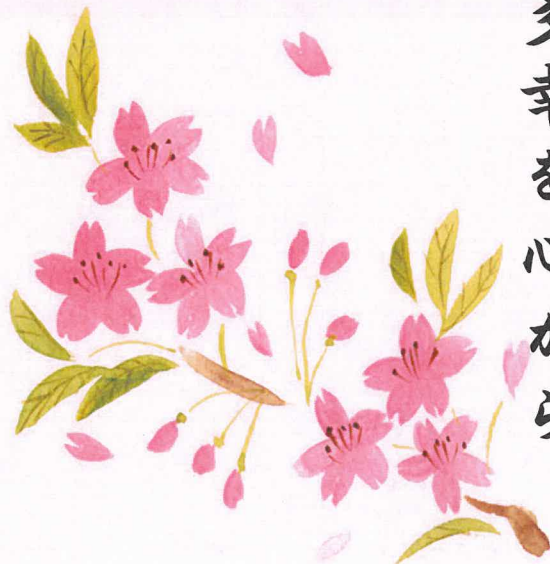 多幸を心から